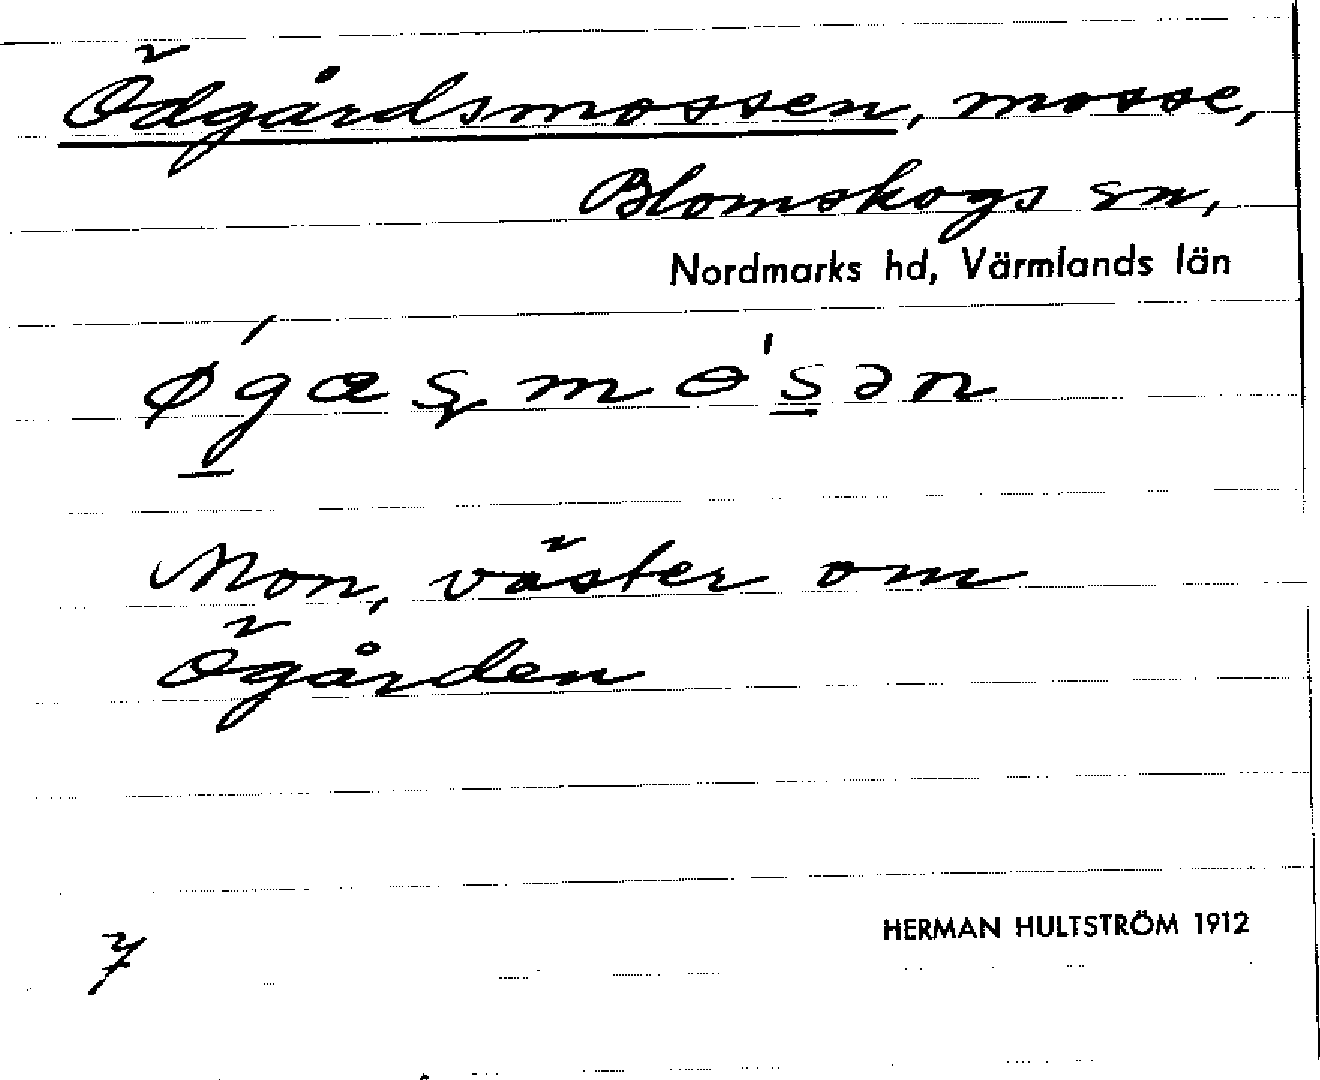 Ödgårdsmossen, mosse,
Blomskogs sn,
Nordmarks hd, Värmlands län
Mon, väster om
Ögården
7
HERMAN HULTSTRÖM 1912